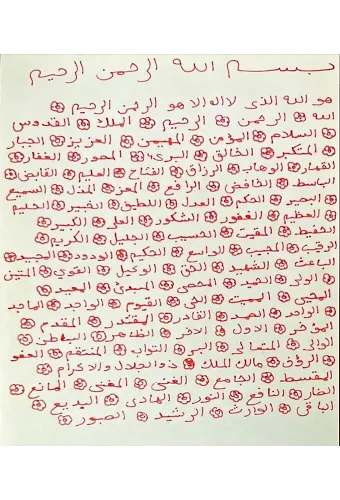 بسم الله الرحمن الرحيم
هو الله الذى لا اله الا هو الرحمن الرحيم
الله الرحمن الرحيم الملك القدوس
السلام المؤمن المهيمن العزيز الجبار
المتكبر الخالق البارىء المصور الغفار
القهار الوهاب الرزاق الفتاح العليم القابض
الباسط الخافض الرافع المعز المذل السميع
البصير الحكم العدل اللطيف الخبير الحليم
العظيم الغفور الشكور العلى الكبير
الحفيظ المقيت الحسيب الجليل الكريم
الرقيب المجيب الواسع الحكيم الودود المجيد
الباعث الشهيد الحق الوكيل القوي المتين
الولى الحميد المحصى المبدئ المعيد
المحيى المميت الحى القيوم الواجد الماجد
الواحد الصمد القادر المقتدر المقدم
المؤخر الاول الاخر الظاهر الباطن
الوالى المتعالى البر التواب المنتقم العفو
الرؤف مالك الملك ذوالجلال والاكرام
المقسط الجامع الغنى المغنى المانع
الضار النافع النور الهادى البديع
الباقى الوارث الرشيد الصبور